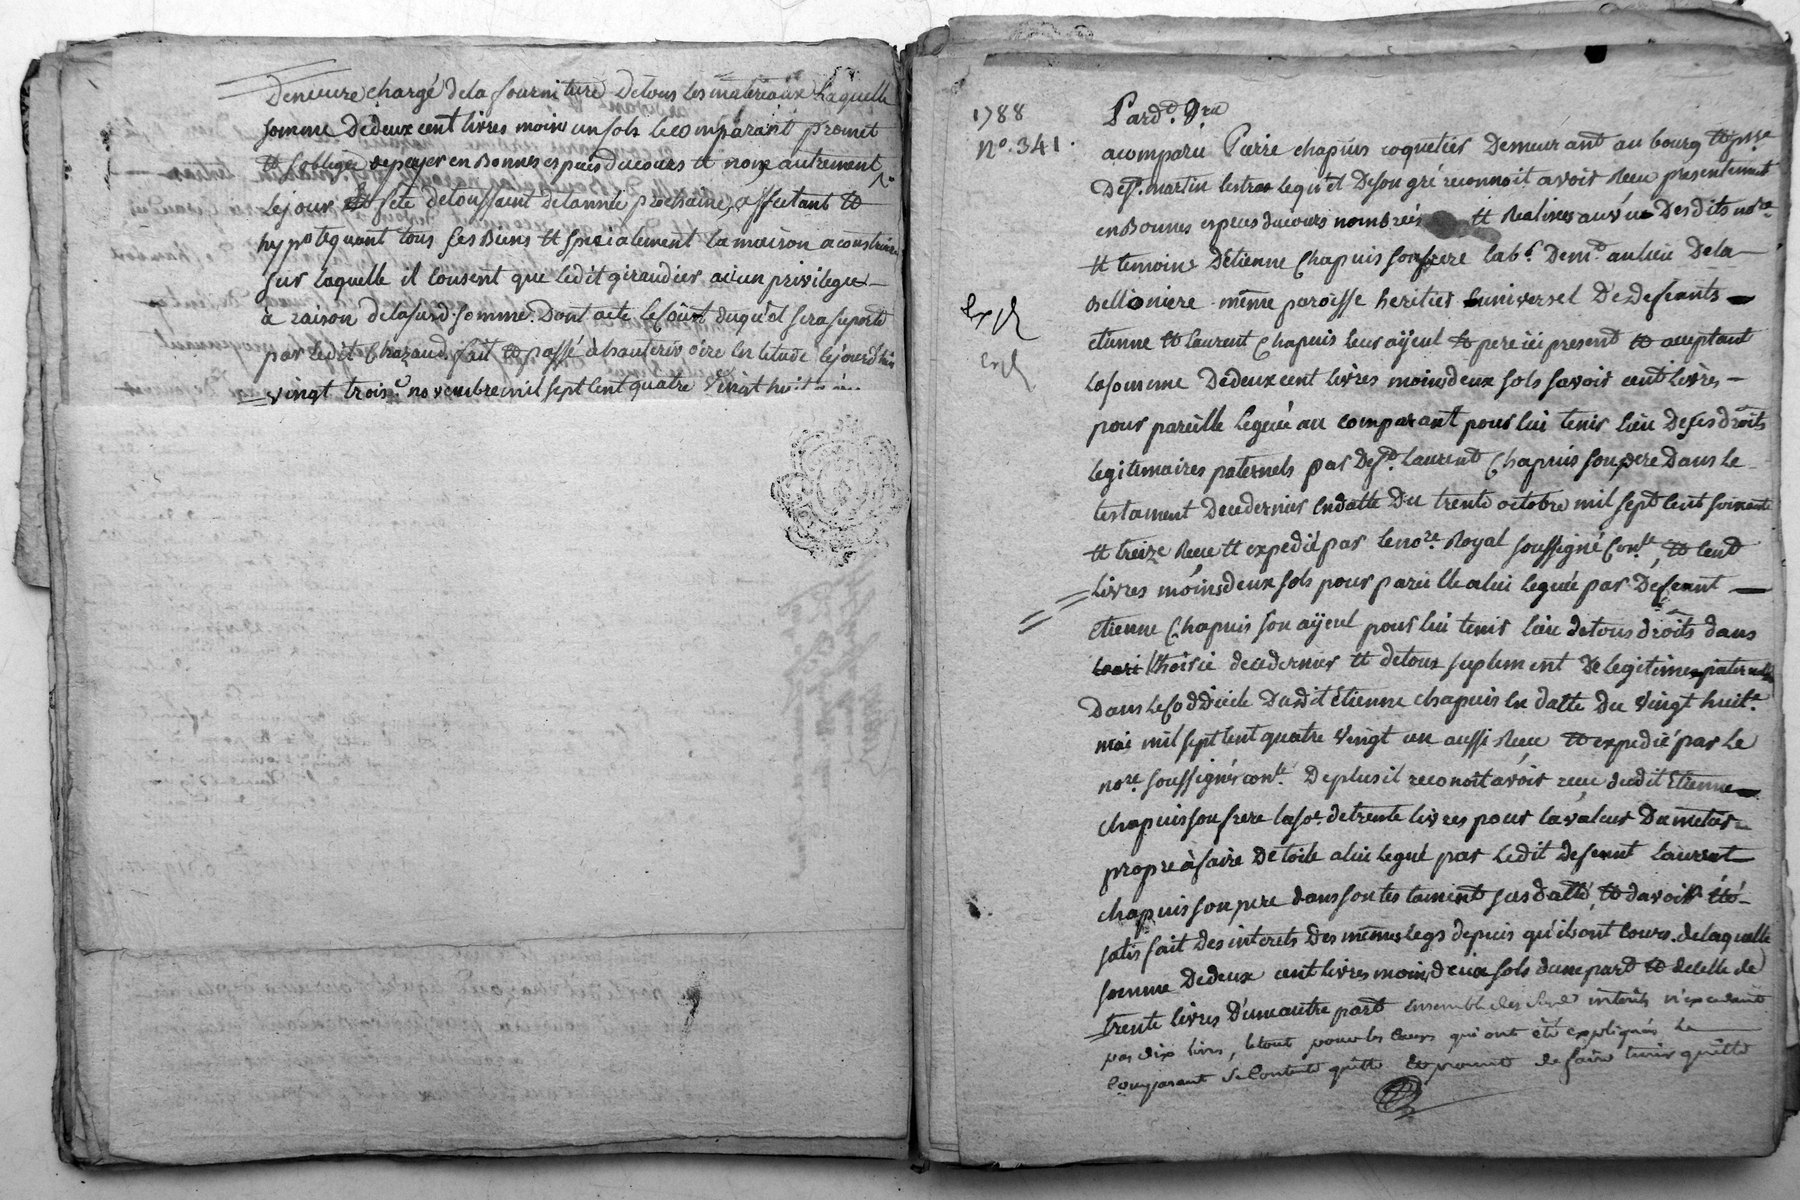 Demeure chargé dela fourniture Detous les materiaux Laquelle
somme Dedeux cent livres moins un sols le comparant promet
et soblige depayer en Bonnes especes ducours et non autrement
lejour et fete detoussaint delannée prochaine, affectant et
hypotequant tous ses Biens et specialement la maison a construire
sur laquelle il consent que ledit giraudier ait un privilege
à raison delasusd. somme. Dont acte le sera suporté
par ledit Chazaud fait et passé à hauterivoire en letude lejourdhui
vingt trois.e novembre mil sept cent quatre vingt huit
1788
No. 341.
Pard.t
acomparu Pierre chapuis coquetier Demeurant au bourg et psse
De st. martin lestra lequel Deson gré reconnoit avoir Reçu presentement
en Bonnes especes ducours nombrées et Realisées au vu Desdits nore
et temoins D'Etienne Chapuis son frere lab.r Dem.t au lieu Dela
Belloniere même paroisse heritier universel De defeants
etienne et laurent Chapuis leur ayeul et pere ici present et aceptant
lasomme Dedeux cent livres moins deux sols savoir cent livres
pour pareille leguée au comparant pour lui tenir lieu De ses droits
legitimaires paternels par Def.t Laurent Chapuis son pere Dans le
testament De ce dernier en datte Du trente octobre mil sept cent soixante
et treize Reçu et expedié par lenore. Royal soussigné con.lé, et cent
livres moins deux sols pour pareille a lui leguée par Defeant
Etienne Chapuis son aÿeul pour lui tenir lieu detous droits dans
lhoirie de ce dernier et detous suplement de legitime paternelle
Dans le Coddicile Dudit Etienne chapuis en datte Du vingt huite.
mai mil sept cent quatre vingt un aussi Reçu et expedié par le
nore. soussigné con.lé Deplus il reconoit avoir reçu dudit Etienne
chapuis son frere la soe. detrente livres pour la valeur Du metier
propre à faire De toile a lui legué par ledit defeant Laurent
chapuis son pere dans son testament susdatté, et davoir été
satisfait des interets des mêmes legs depuis qu'ils ont cours. delaquelle
somme Dedeux cent livres moins deux sols dune part et de celle de
trente livres D'une autre part ensemble des susd. interets n'excedant
pas dix livres, letout pour les causes qui ont été expliquées le
comparant se contente quitte et promet de faire tenir quitte